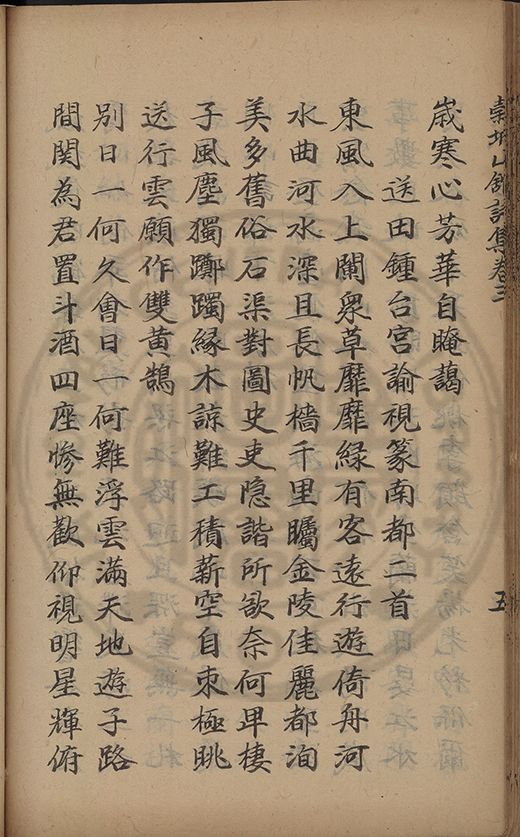 崇相山館詩集卷三
五
歲寒心芳華自晻藹
送田鍾台宮諭視篆南都二首
東風入上闌衆草靡靡綠有客遠行遊倚舟河
水曲河水深且長帆檣千里矚金陵佳麗都洵
美多舊俗石渠對圖史吏隐諧所欲奈何早棲
子風塵獨躑躅緣木諒難工積薪空自束極眺
送行雲願作雙黄鵠
別日一何久會日一何難浮雲滿天地遊子路
間関為君置斗酒四座惨無歡仰視明星輝俯